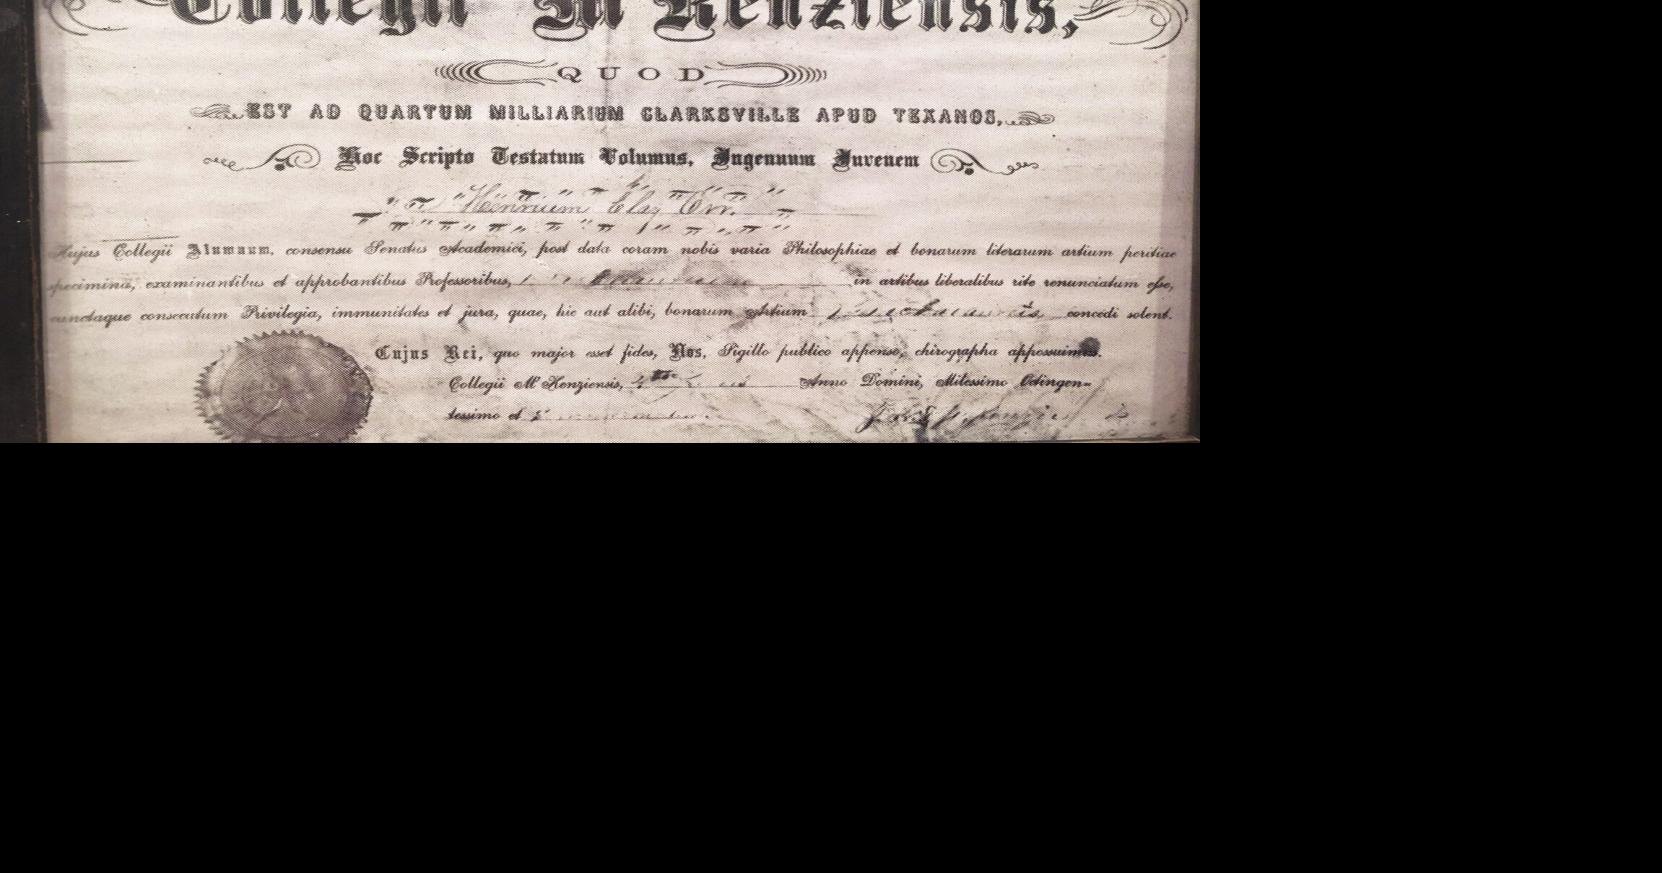 Collegii M'Kenziensis,
QUOD
EST AD QUARTUM MILLIARIUM CLARKSVILLE APUD TEXANOS,
Hoc Scripto Testatum Volumus, Ingenuum Juvenem
Henricum Clay Orr.
Hujus Collegii Alumnum, consensu Senatus Academici, post data coram nobis varia Philosophiae et bonarum literarum artium peritiae
specimina, examinantibus et approbantibus Professoribus, in artibus liberalibus rite renunciatum esse,
cunctaque consecutum Privilegia, immunitates et jura, quae, hic aut alibi, bonarum Artium concedi solent.
Cujus Rei, quo major esset fides, Nos, Sigillo publico appenso, chirographa apposuimus.
Collegii M'Kenziensis, Anno Domini, Milessimo Octingen-
tessimo et